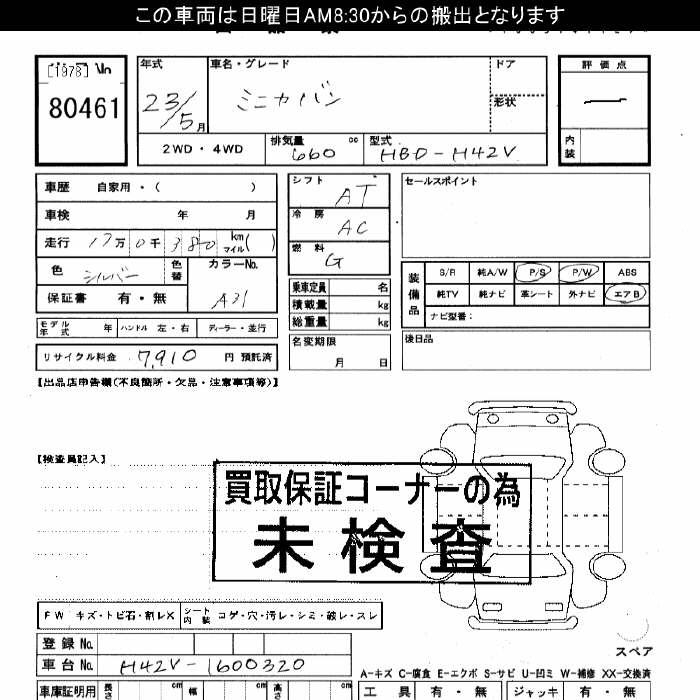 この車両は日曜日AM8:30からの搬出となります
[1978] Vn
80461
年式
23/5月
車名・グレード
ミニカバン
ドア
形状
評価点
—
内装
2WD・4WD
排気量 660 cc
型式 HBD-H42V
車歴 自家用・( )
車検 年 月
走行 17万0千380 km マイル( )
色 シルバー 色替
カラーNo. A31
保証書 有・無
モデル年式 年 ハンドル 左・右 ディーラー・並行
リサイクル料金 7,910 円 預託済
シフト AT
冷房 AC
燃料 G
乗車定員 名
積載量 kg
総重量 kg
名変期限
月 日
セールスポイント
装備品
S/R 純A/W P/S P/W ABS
純TV 純ナビ 革シート 外ナビ エアB
ナビ型番:
後日品
【出品店申告欄(不良箇所・欠品・注意事項等)】
【検査員記入】
買取保証コーナーの為
未検査
FW キズ・トビ石・割レX シート内装 コゲ・穴・汚レ・シミ・破レ・スレ
登録No.
車台No. H42V-1600320
スペア
A-キズ C-腐食 E-エクボ S-サビ U-凹ミ W-補修 XX-交換済
車庫証明用 長さ cm 幅 cm 高さ cm
工具 有・無 ジャッキ 有・無